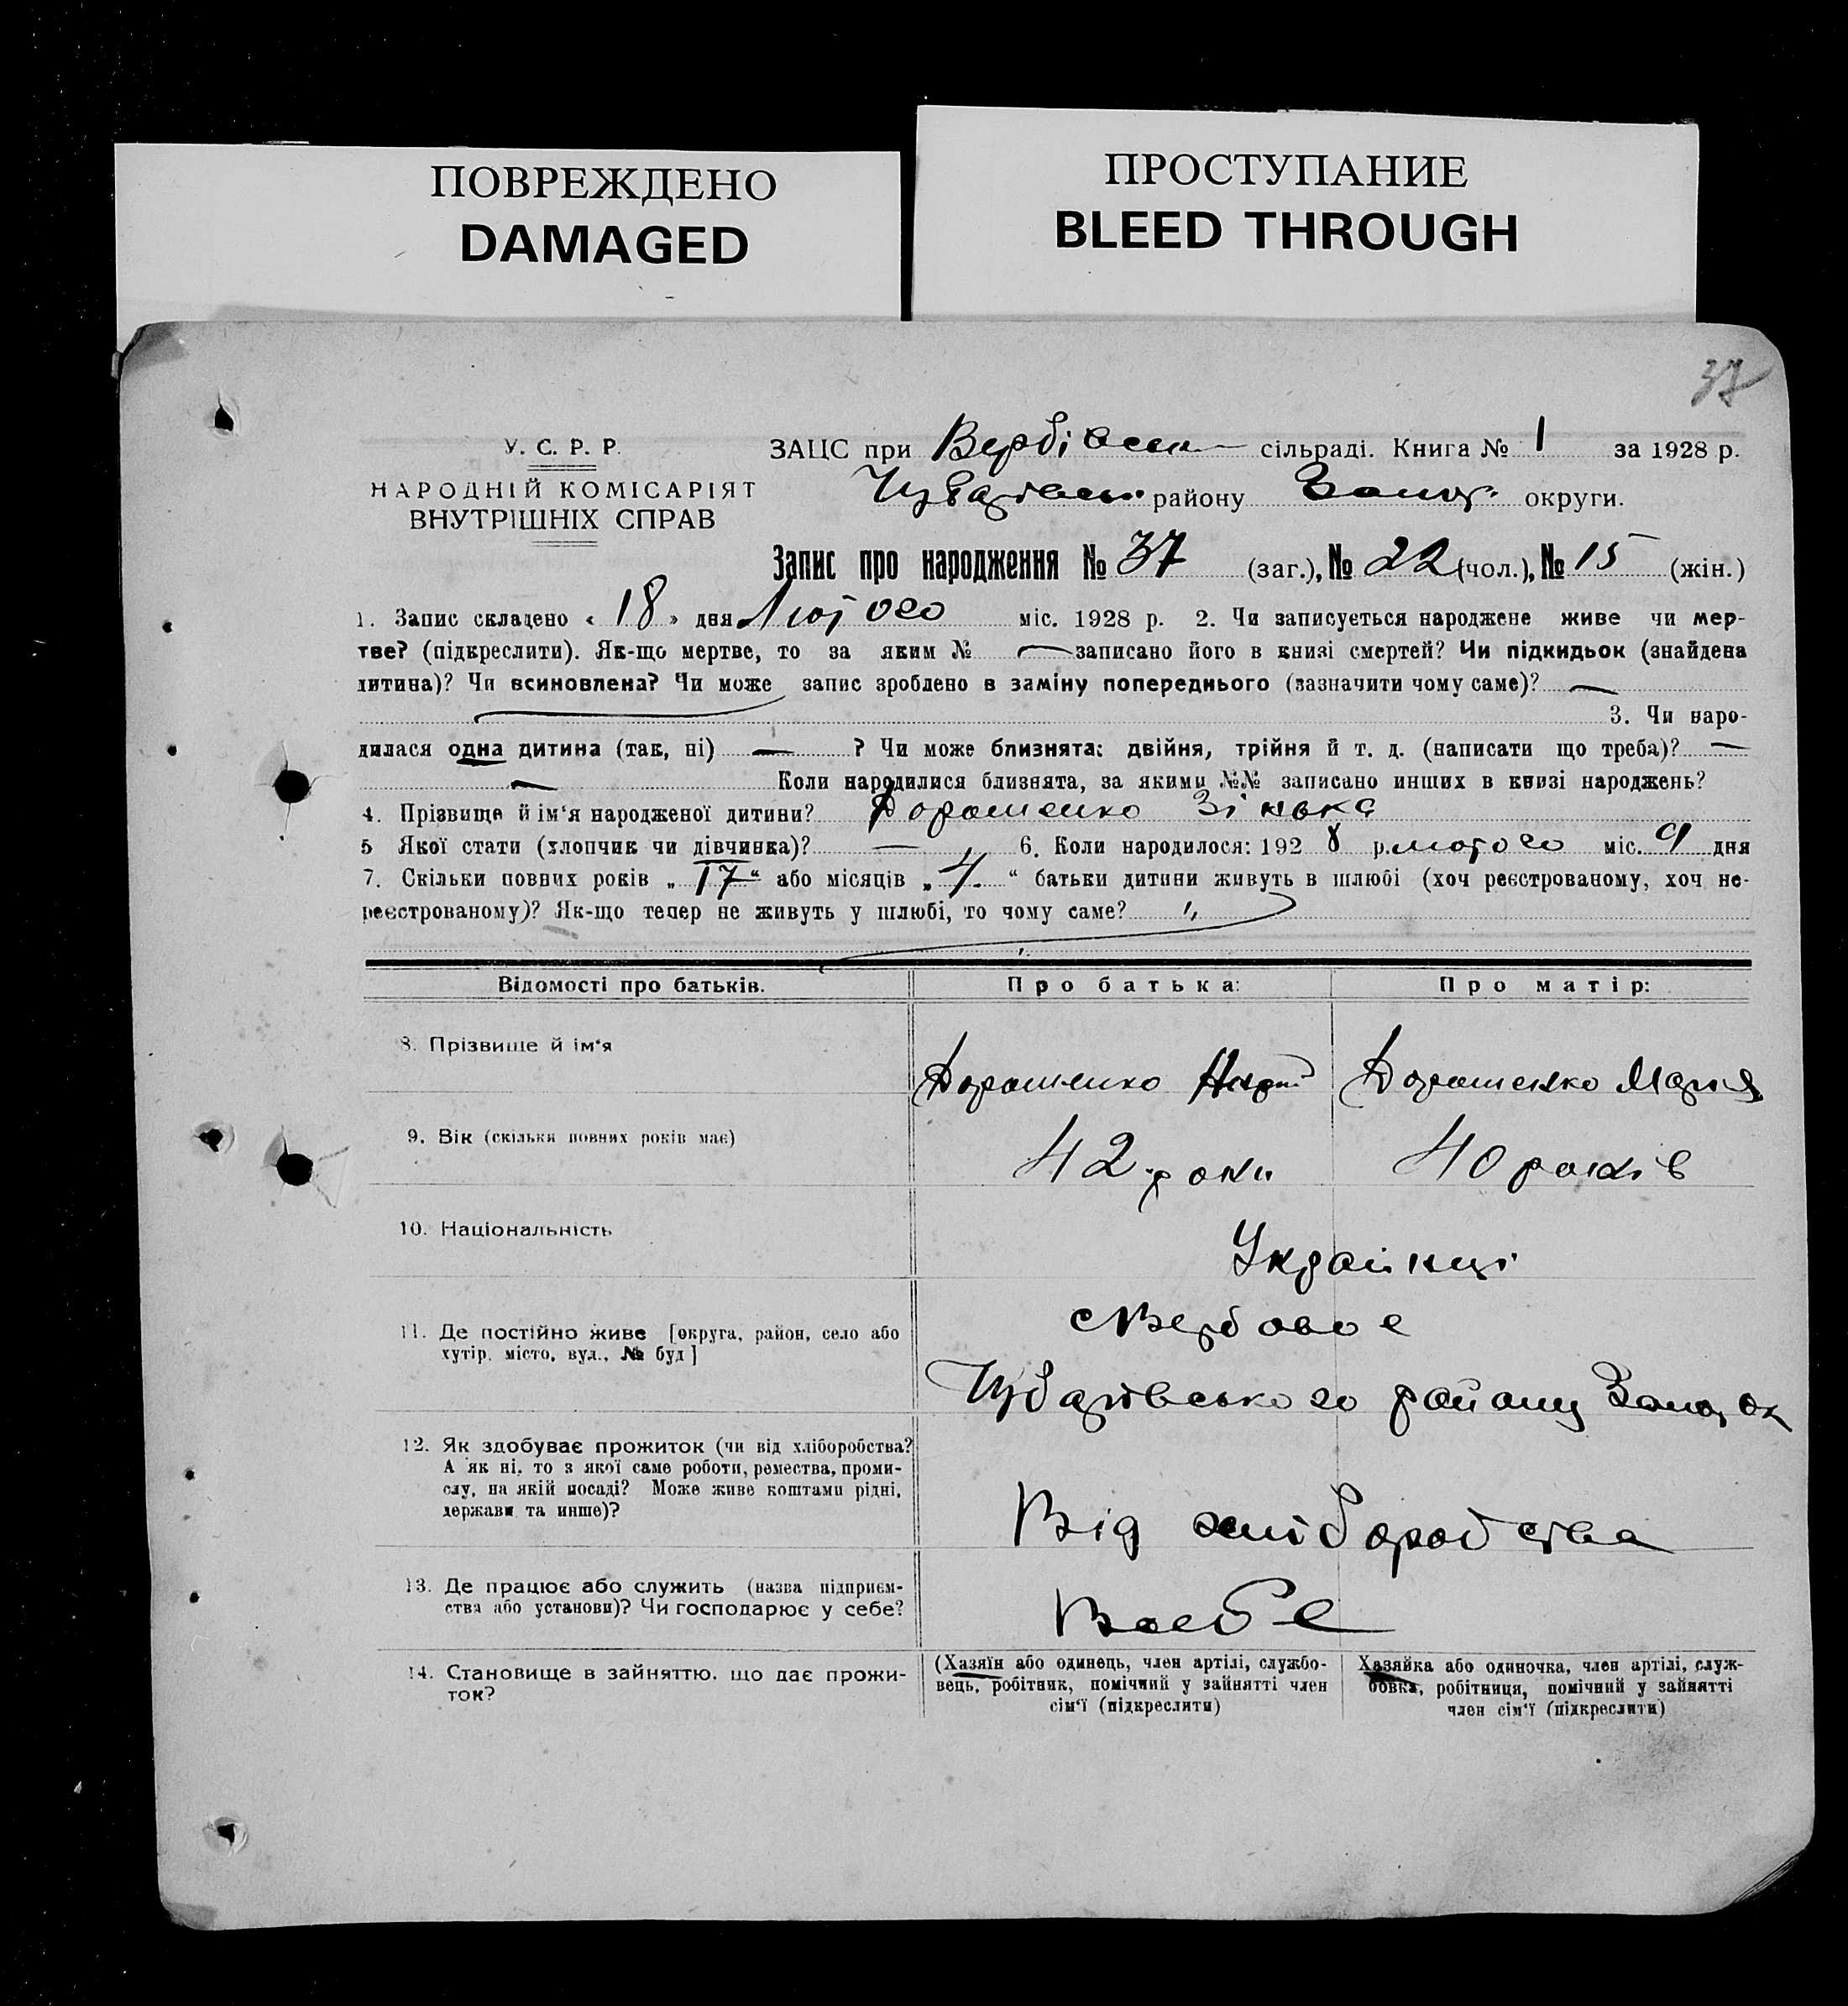 ПОВРЕЖДЕНО
DAMAGED
ПРОСТУПАНИЕ
BLEED THROUGH
37
У. С. Р. Р.
НАРОДНІЙ КОМІСАРІЯТ
ВНУТРІШНІХ СПРАВ
ЗАЦС при Вербівськ сільраді. Книга № 1 за 1928 р.
району Запор. округи.
Запис про народження № 37 (заг.), № 22 (чол.), № 15 (жін.)
1. Запис складено « 18 » дня Лютого міс. 1928 р. 2. Чи записується народжене живе чи мер-
тве? (підкреслити). Як-що мертве, то за яким № — записано його в книзі смертей? Чи підкидьок (знайдена
дитина)? Чи всиновлена? Чи може запис зроблено в заміну попереднього (зазначити чому саме)? —
3. Чи наро-
дилася одна дитина (так, ні) — ? Чи може близнята: двійня, трійня й т. д. (написати що треба)? —
— Коли народилися близнята, за якими №№ записано инших в книзі народжень?
4. Прізвище й ім'я народженої дитини? Дорошенко Зінька
5 Якої стати (хлопчик чи дівчинка)? — 6. Коли народилося: 192 8 р. лютого міс. 9 дня
7. Скільки повних років „ 17 “ або місяців „ 4. “ батьки дитини живуть в шлюбі (хоч реєстрованому, хоч не-
реєстрованому)? Як-що тепер не живуть у шлюбі, то чому саме? „
Відомості про батьків.
Про батька:
Про матір:
8. Прізвище й ім'я
Дорошенко
Дорошенко Мария
9. Вік (скільки повних років має)
42 роки
40 років
10. Національність
Українці
11. Де постійно живе [округа, район, село або
хутір, місто, вул., № буд]
с Вербовое
району Запор. ок
12. Як здобуває прожиток (чи від хліборобства?
А як ні, то з якої саме роботи, ремества, проми-
слу, на якій посаді? Може живе коштами рідні,
держави та инше)?
Від хліборобства
13. Де працює або служить (назва підприєм-
ства або установи)? Чи господарює у себе?
В себе
14. Становище в зайняттю, що дає прожи-
ток?
(Хазяїн або одинець, член артілі, службо-
вець, робітник, помічний у зайнятті член
сім'ї (підкреслити)
Хазяйка або одиночка, член артілі, служ-
бовка, робітниця, помічний у зайнятті
член сім'ї (підкреслити)